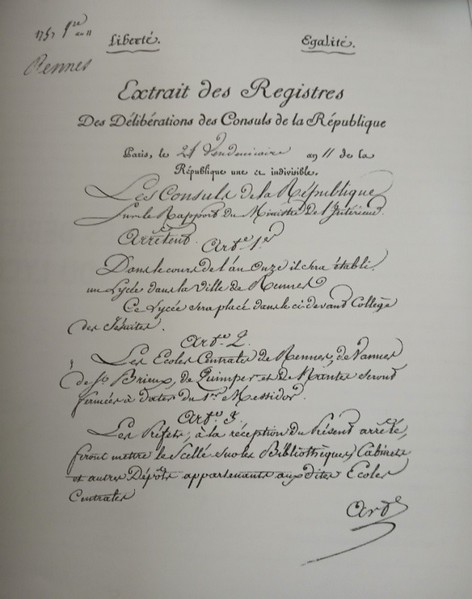 1757 1re an 11
Liberté. Egalité.
Rennes
Extrait des Registres
Des Délibérations des Consuls de la République
Paris, le 24 Vendemiaire an 11 de la
République une et indivisible.
Les Consuls de la République
Sur le Rapport du Ministre de l'Intérieur
Arrêtent
Arte. 1er
Dans le cours de l'an Onze il sera établi
un Lycée dans la Ville de Rennes
Ce Lycée sera placé dans le ci-devant Collège
des Jésuites.
Arte. 2.
Les Ecoles Centrales de Rennes, de Vannes
de St. Brieux, de Quimper et de Nantes seront
fermées à dater du 1er Messidor.
Arte. 3.
Les Préfets, à la réception du Présent arrêté,
feront mettre le Scellé sur les Bibliothèques, Cabinets
et autres Dépôts appartenants aux dites Ecoles
Centrales
Arte